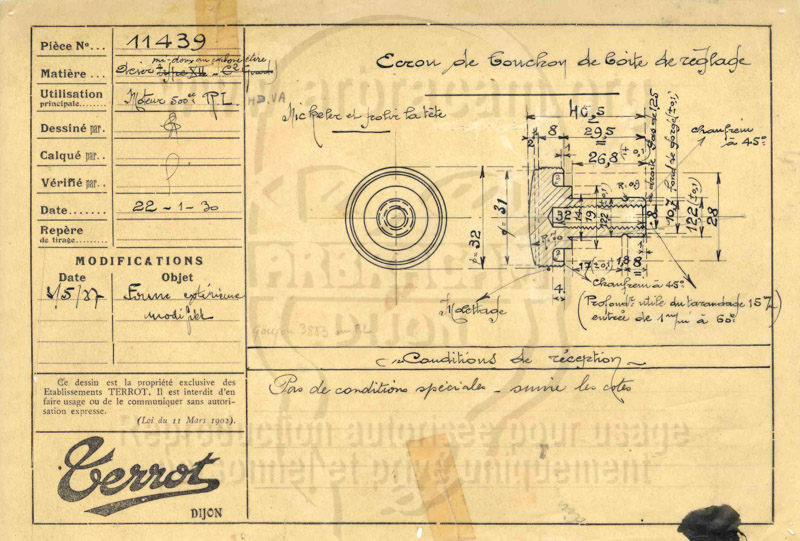 Pièce N°... 11439
mi-doux au carbone étiré
Matière... Décol
Utilisation
principale... Moteur 500cc RL HD.VA
Dessiné par.
Calqué par..
Vérifié par..
Date... 22-1-30
Repère
de tirage...
MODIFICATIONS
Date Objet
3/5/37 Forme extérieure
modifiée
Ce dessin est la propriété exclusive des
Etablissements TERROT. Il est interdit d'en
faire usage ou de le communiquer sans autori-
sation expresse.
(Loi du 11 Mars 1902).
Terrot
DIJON
Ecrou de bouchon de boîte de réglage
Nickeler et polir la tête
40,5
8 29,5
2
26,8 (±0,1)
chanfrein
1 à 45°
pas de 125
fond de gorge (±0,1)
ø=32
ø=31
14
19
122
10,7
122 (±0,1)
28
17 (±0,1)
1,8 8
4
Chanfrein à 45°
Moletage
(Profond.r utile du taraudage 157
entrée de 1 m/m à 60°)
goujon 3883
Conditions de réception
Pas de conditions spéciales - suivre les cotes
Reproduction autorisée pour usage
personnel et privé uniquement